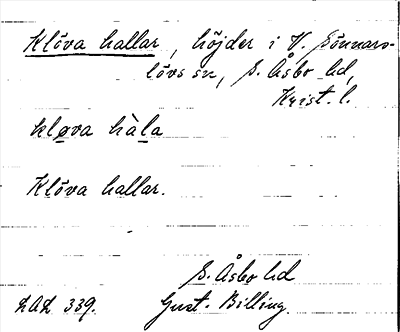 Klöva hallar, höjder i V. Sönnars-
lövs sn, S. Åsbo hd,
Krist. l.
kløva hàla
Klöva hallar.
S. Åsbo hd
LAL 339. Gust. Billing.